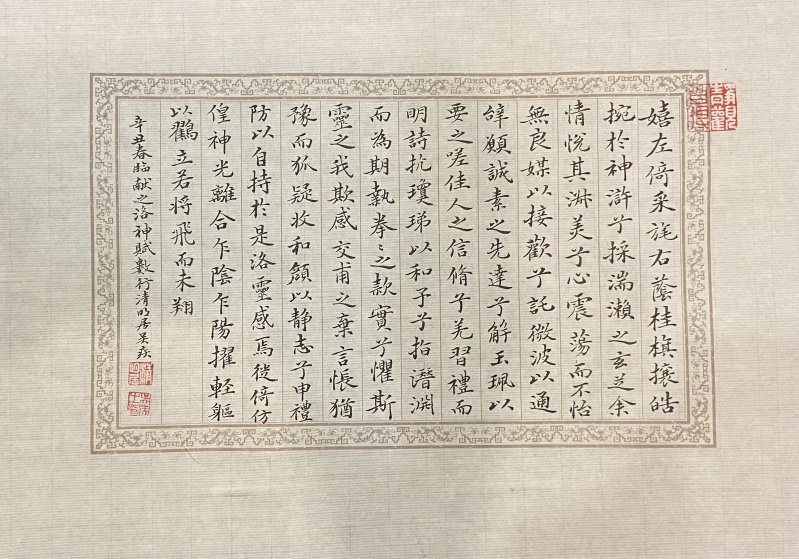 嬉左倚采旄右蔭桂旗攘皓
捥於神滸兮採湍瀨之玄芝余
情悅其淑美兮心震蕩而不怡
無良媒以接歡兮託微波以通
辝願誠素之先達兮解玉珮以
要之嗟佳人之信脩兮羌習禮而
明詩抗瓊珶以和予兮指潛淵
而為期執拳〻之款實兮懼斯
靈之我欺感交甫之棄言悵猶
豫而狐疑收和顏以静志兮申禮
防以自持於是洛靈感焉徙倚仿
偟神光離合乍陰乍陽擢輕軀
以鸖立若將飛而未翔
辛丑春臨献之洛神賦數行清明居吴